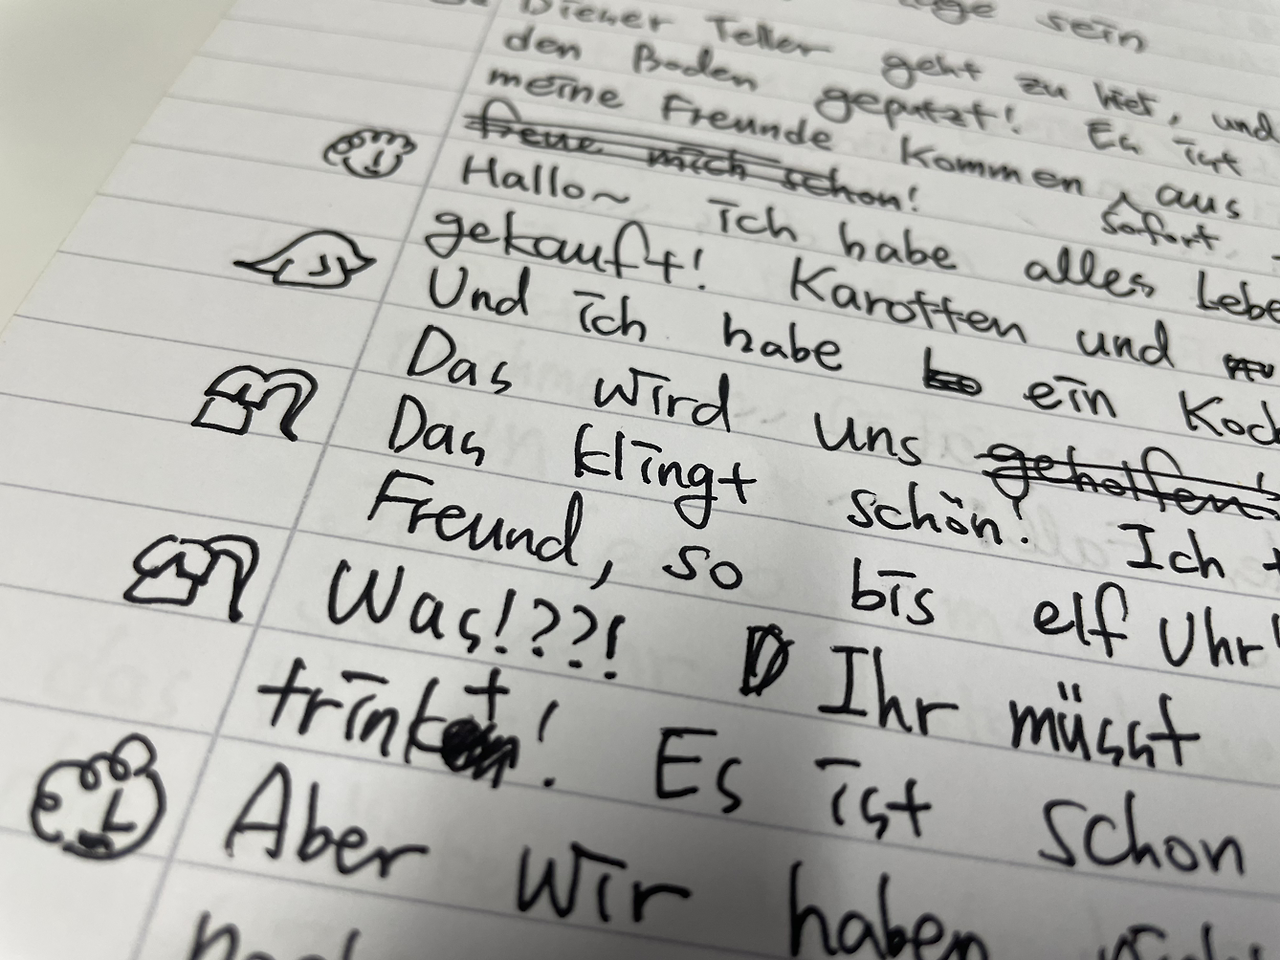 sein
Dieser Teller geht zu hier, und
den Boden geputzt! Es ist
meine Freunde kommen aus
sofort
freue mich schon!
Hallo~ ich habe alles Lebe
gekauft! Karotten und
Und ich habe ein Koch
Das wird uns geholfen
Das klingt schön! Ich
Freund, so bis elf Uhr!
Was!??! Ihr müsst
trinkt! Es ist schon
Aber wir haben
noch